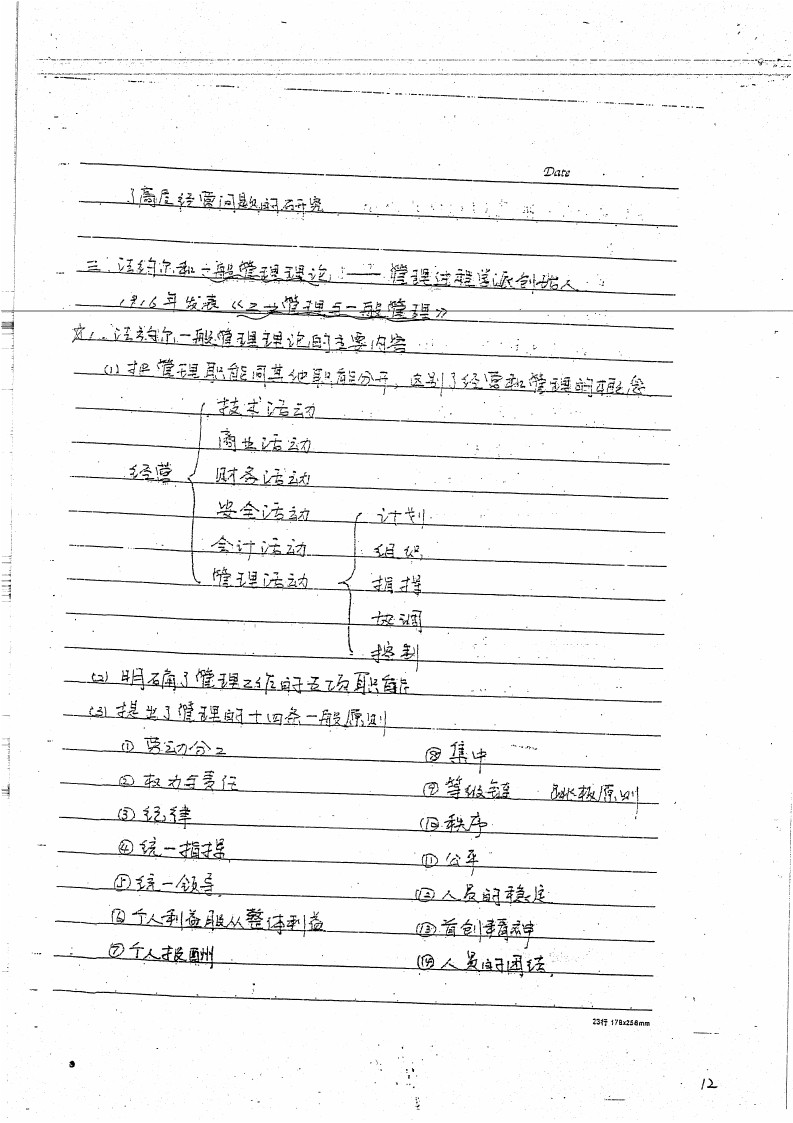 Date
了高层经营问题的研究
三、法约尔和一般管理理论:——管理过程学派创始人
1916年发表《工业管理与一般管理》
☆1、法约尔一般管理理论的主要内容
(1) 把管理职能同其他职能分开,区别了经营和管理的概念
技术活动
商业活动
经营 财务活动
安全活动 计划
会计活动 组织
管理活动 指挥
协调
控制
(2) 明确了管理工作的五项职能
(3) 提出了管理的十四条一般原则
① 劳动分工 ⑧ 集中
② 权力与责任 ⑨ 等级链 跳板原则
③ 纪律 ⑩ 秩序
④ 统一指挥 ⑪ 公平
⑤ 统一领导 ⑫ 人员的稳定
⑥ 个人利益服从整体利益 ⑬ 首创精神
⑦ 个人报酬 ⑭ 人员的团结
23行 178x256mm
12